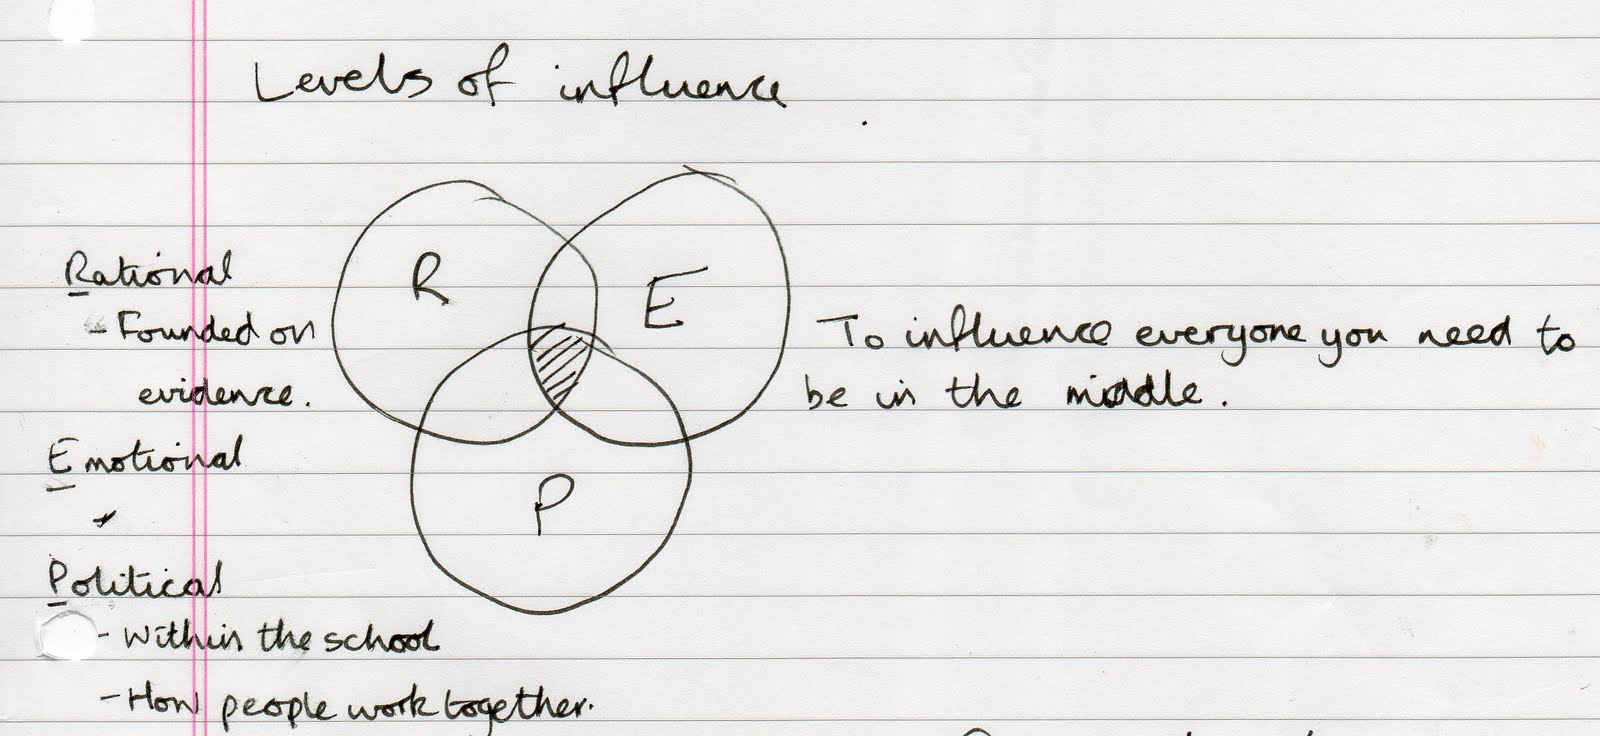 Levels of influence
R
E
P
Rational
- Founded on
evidence.
Emotional
Political
- Within the school
- How people work together.
To influence everyone you need to
be in the middle.